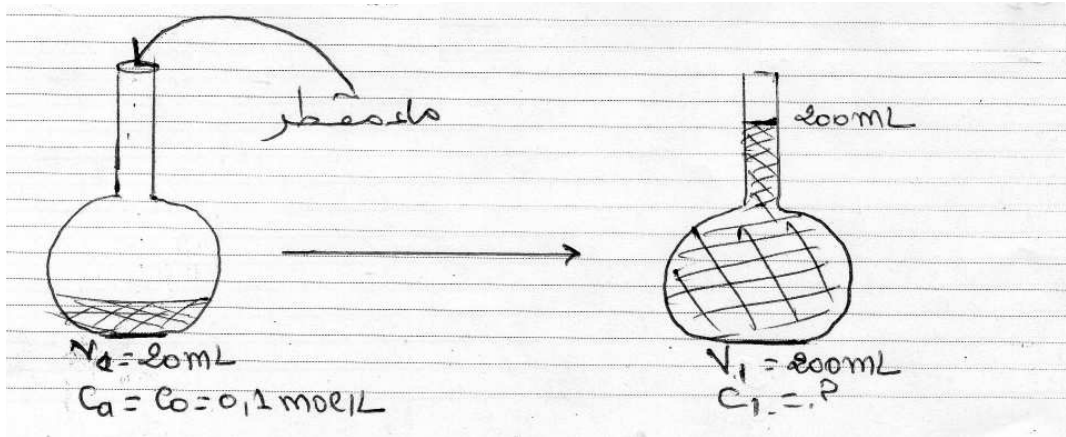 ماء مقطر
200mL
Va=20mL
Ca=C0=0,1mol/L
V1=200mL
C1=?